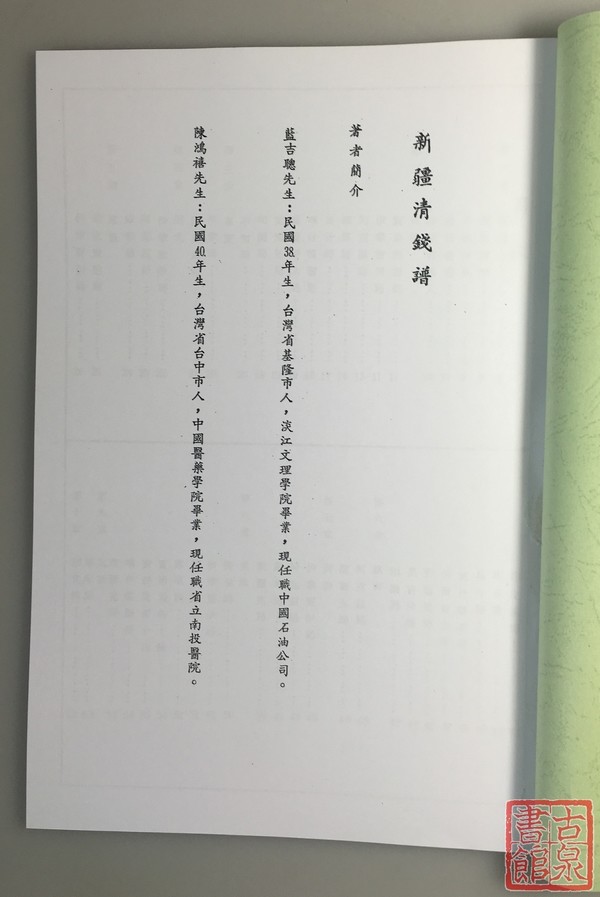 新疆清錢譜
著者簡介
藍吉聰先生：民國38年生，台灣省基隆市人，淡江文理學院畢業，現任職中國石油公司。
陳鴻禧先生：民國40年生，台灣省台中市人，中國醫藥學院畢業，現任職省立南投醫院。
古泉書館